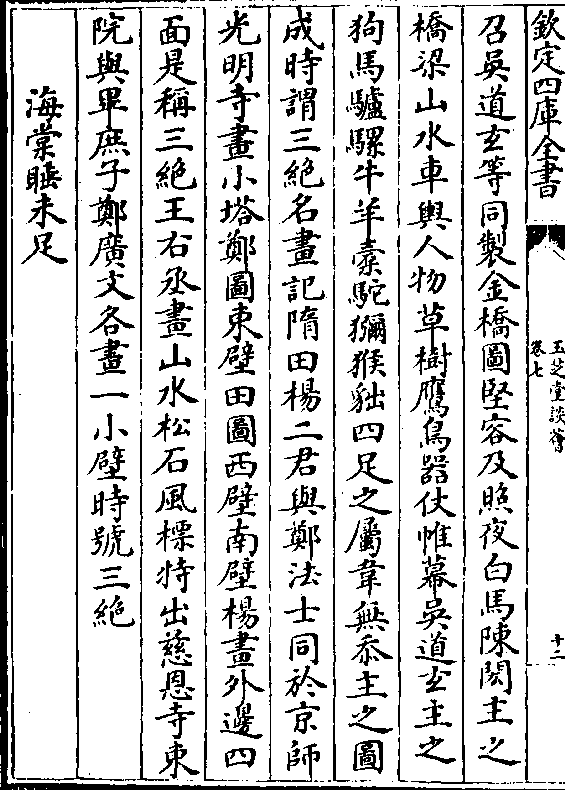 欽定四庫全書
玉芝堂談薈
卷七
十二
召吳道玄等同製金橋圖聖容及照夜白馬陳閎主之
橋梁山水車輿人物草樹鷹鳥器仗帷幕吳道玄主之
狗馬驢騾牛羊橐駝獼猴㹠四足之屬韋無忝主之圖
成時謂三絶名畫記隋田楊二君與鄭法士同於京師
光明寺畫小塔鄭圖東壁田圖西壁南壁楊畫外邊四
面是稱三絶王右丞畫山水松石風標特出慈恩寺東
院與畢庶子鄭廣文各畫一小壁時號三絶
海棠睡未足